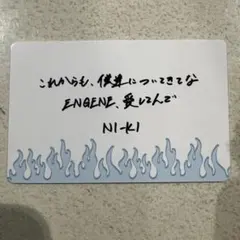 これからも、僕達についてきてな
ENGENE、愛してんで
NI-KI